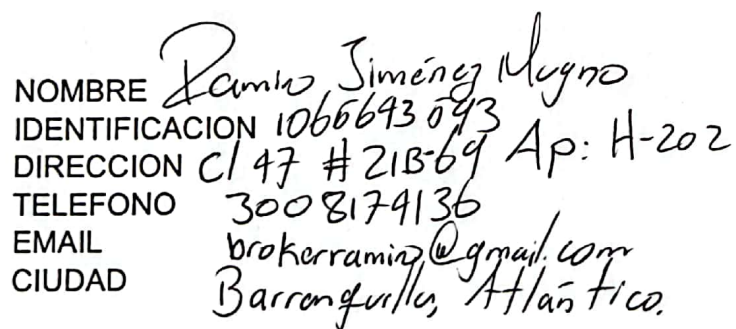 NOMBRE Ramiro Jiménez Mugno
IDENTIFICACION 1066643043
DIRECCION Cl 47 # 21B-69 Ap: H-202
TELEFONO 3008174136
EMAIL brokerramiro@gmail.com
CIUDAD Barranquilla, Atlántico.